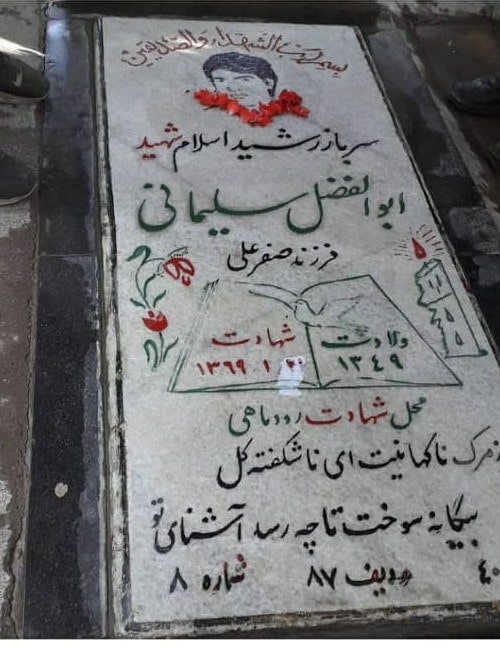 بسم رب الشهداء والصدیقین
سرباز رشید اسلام شهید
ابوالفضل سلیمانی
فرزند صفر علی
ولادت شهادت
۱۳۴۹ ۱۳۶۹ ۱ ۲۰
محل شهادت رودماهی
زمرگ ناگهانیت ای ناشکفته گل
بیگانه سوخت تا چه رسد آشنای تو
۴۰ ردیف ۸۷ شماره ۸